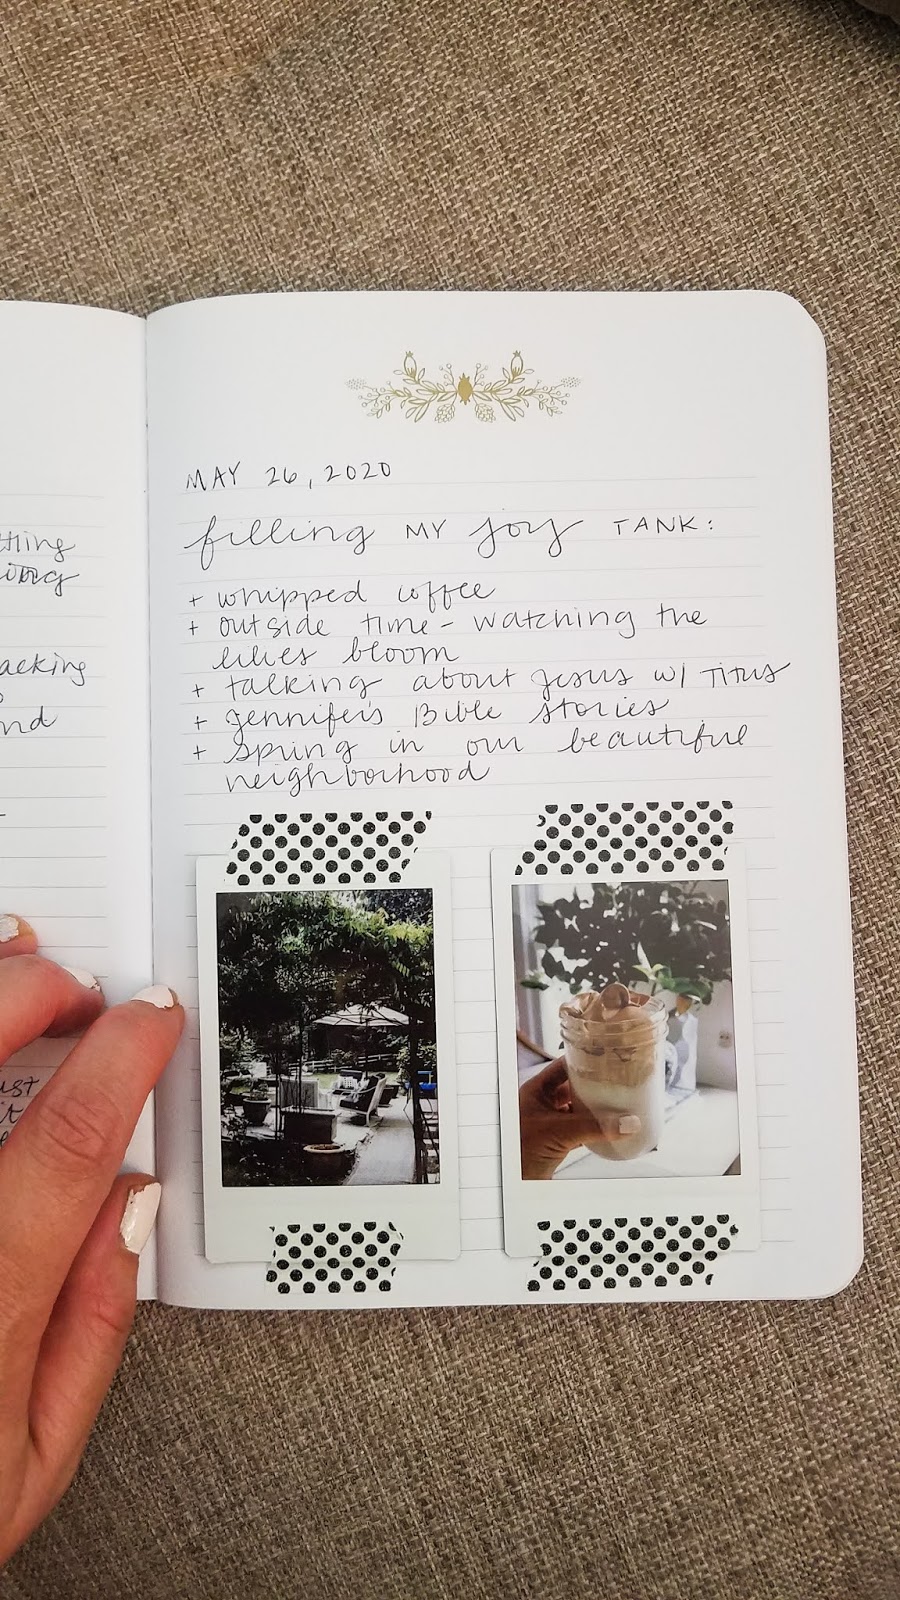 thing
acking
nd
ust
it
MAY 26, 2020
filling MY joy TANK:
+ whipped coffee
+ outside time - watching the
lilies bloom
+ talking about Jesus w/ Titus
+ Jennifer's Bible stories
+ spring in our beautiful
neighborhood